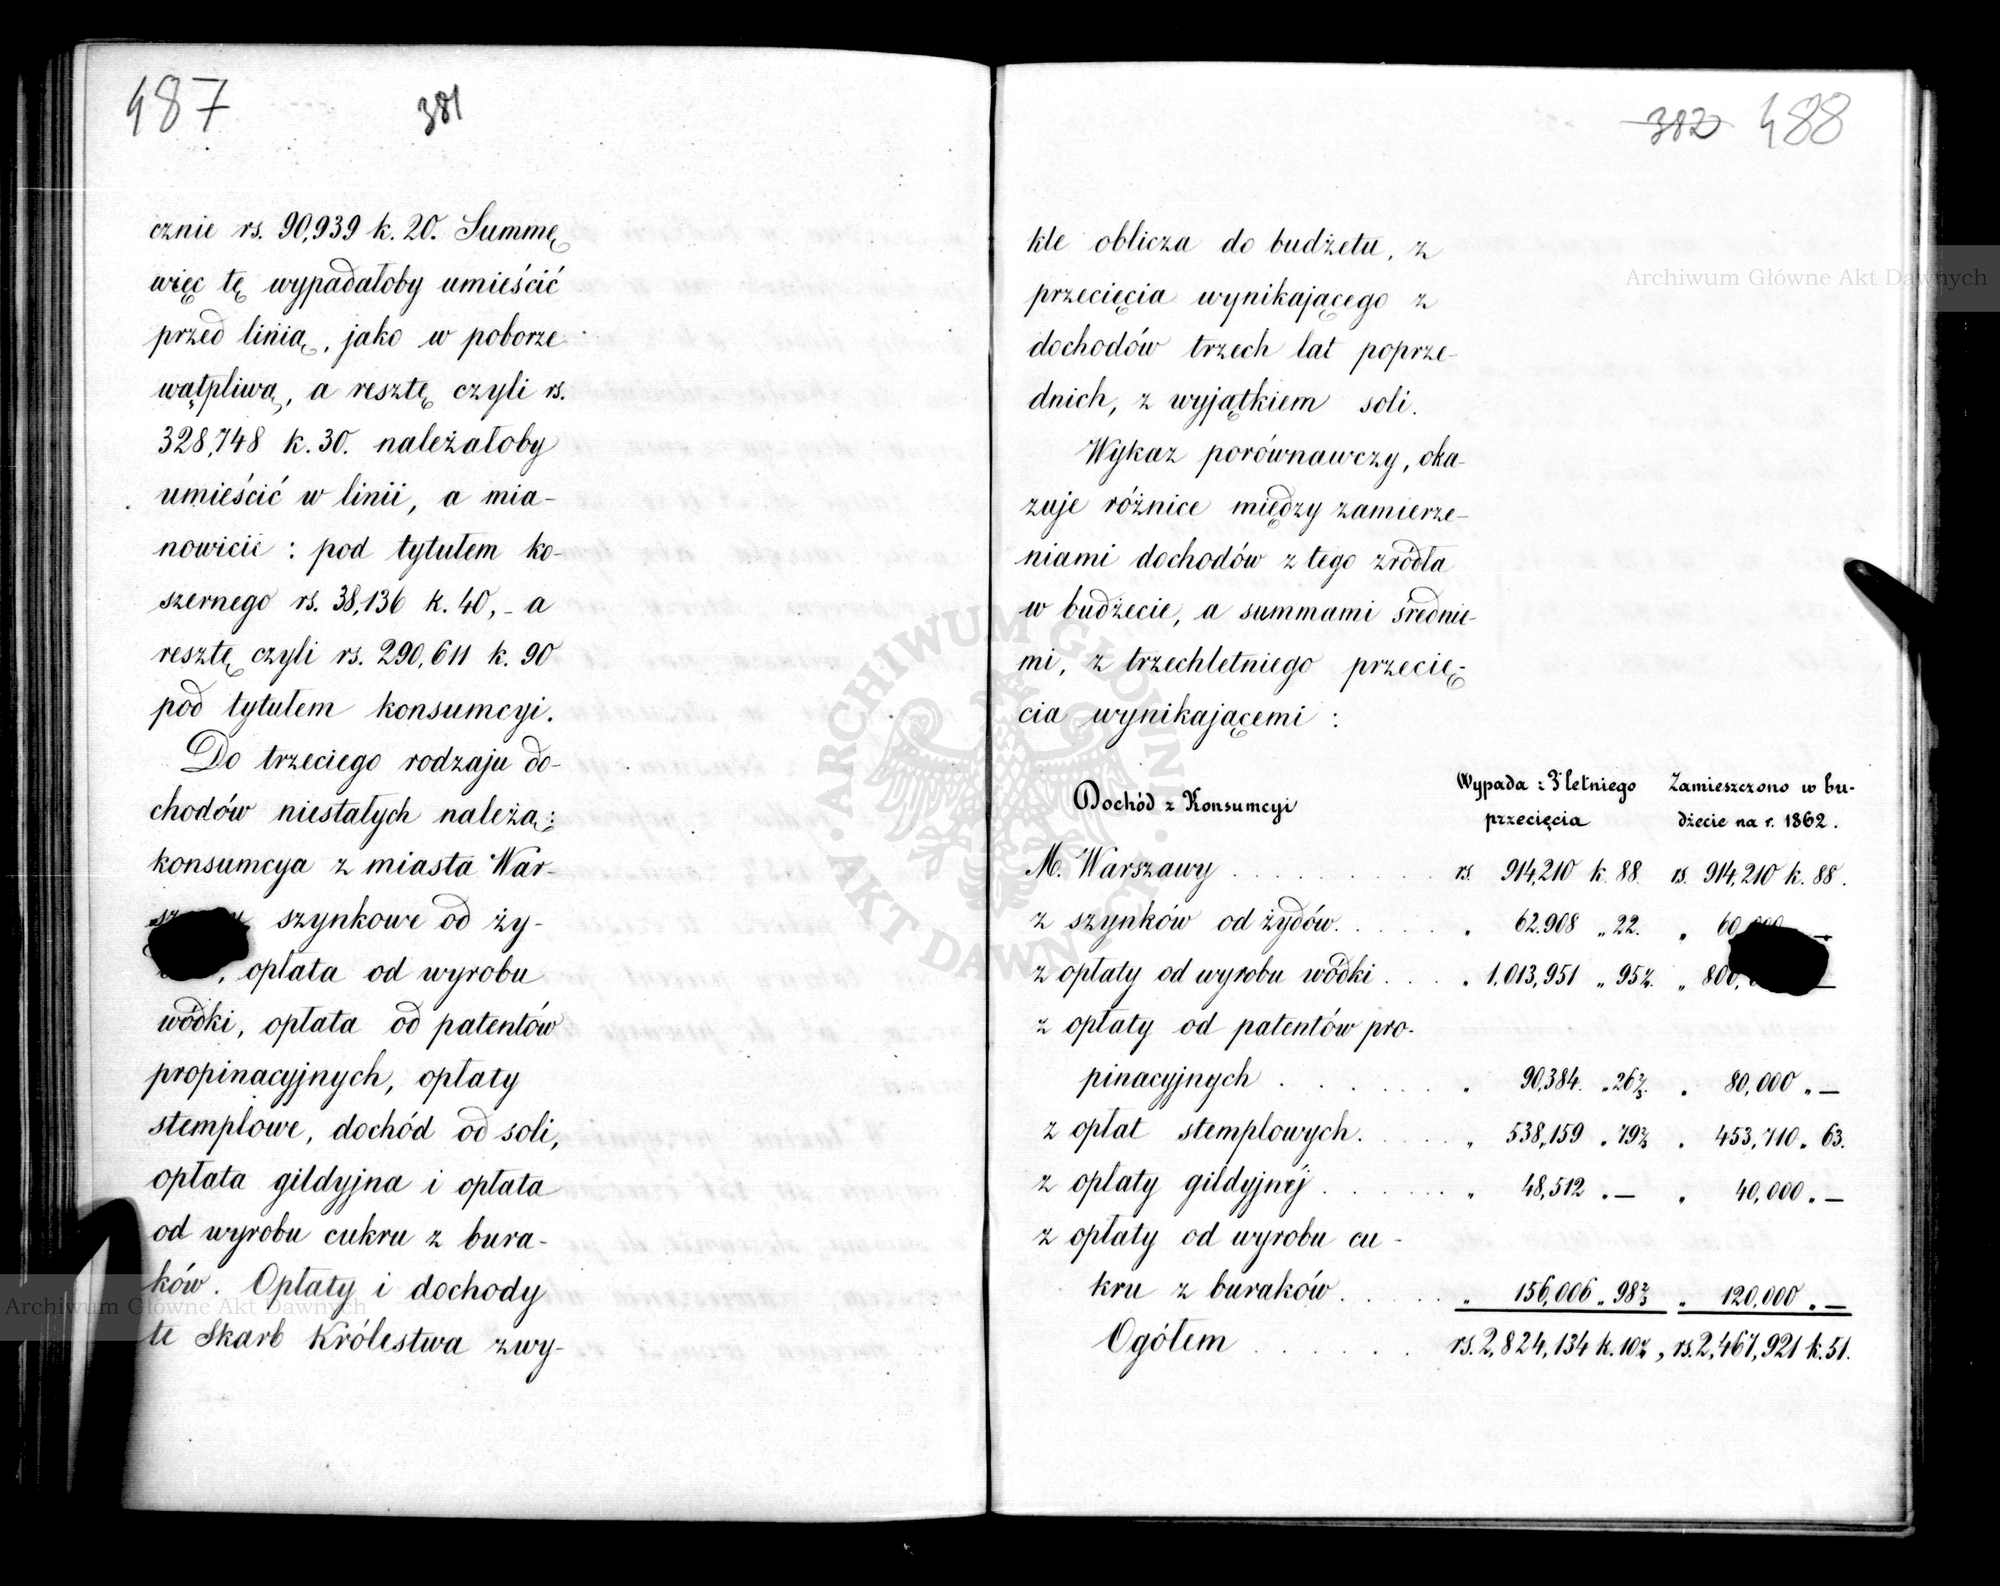 487 381
cznie rs. 90,939 k. 20. Summę
więc tę wypadałoby umieścić
przed linią, jako w poborze
wątpliwą, a resztę czyli rs.
328,748 k. 30. należałoby
umieścić w linii, a mia-
nowicie : pod tytułem ko-
szernego rs. 38,136 k. 40, - a
resztę czyli rs. 290,611 k. 90
pod tytułem konsumcyi.
Do trzeciego rodzaju do-
chodów niestałych należą:
konsumcya z miasta War-
szynkowe od ży-
, opłata od wyrobu
wódki, opłata od patentów
propinacyjnych, opłaty
stemplowe, dochód od soli,
opłata gildyjna i opłata
od wyrobu cukru z bura-
ków. Opłaty i dochody
te Skarb Królestwa zwy-
382 488
kle oblicza do budżetu, z
przecięcia wynikającego z
dochodów trzech lat poprze-
dnich, z wyjątkiem soli.
Wykaz porównawczy, oka-
zuje różnice między zamierze-
niami dochodów z tego źródła
w budżecie, a summami średnie-
mi, z trzechletniego przecię-
cia wynikającemi :
Dochód z Konsumcyi
Wypada z 3letniego
przecięcia
Zamieszczono w bu-
dżecie na r. 1862.
M. Warszawy . . . . . . rs. 914,210 k. 88. rs. 914,210 k. 88.
z szynków od żydów. . . . . . „ 62.908 „ 22. „ 60, —
z opłaty od wyrobu wódki . . . „ 1,013,951 „ 95½. „ 800, —
z opłaty od patentów pro-
pinacyjnych . . . . . . „ 90,384. „ 26⅔. „ 80,000 „ —
z opłat stemplowych. . . . . „ 538,159 „ 79⅔ „ 453,710 „ 63.
z opłaty gildyjnéj . . . . . . „ 48,512 „ — „ 40,000 „ —
z opłaty od wyrobu cu-
kru z buraków. . . . . . „ 156,006 „ 98⅔ „ 120,000 „ —
Ogółem . . . . . . rs. 2,824,134 k. 10½, rs. 2,467,921 k. 51.
Archiwum Główne Akt Dawnych
Archiwum Główne Akt Dawnych
ARCHIWUM GŁÓWNE AKT DAWNYCH